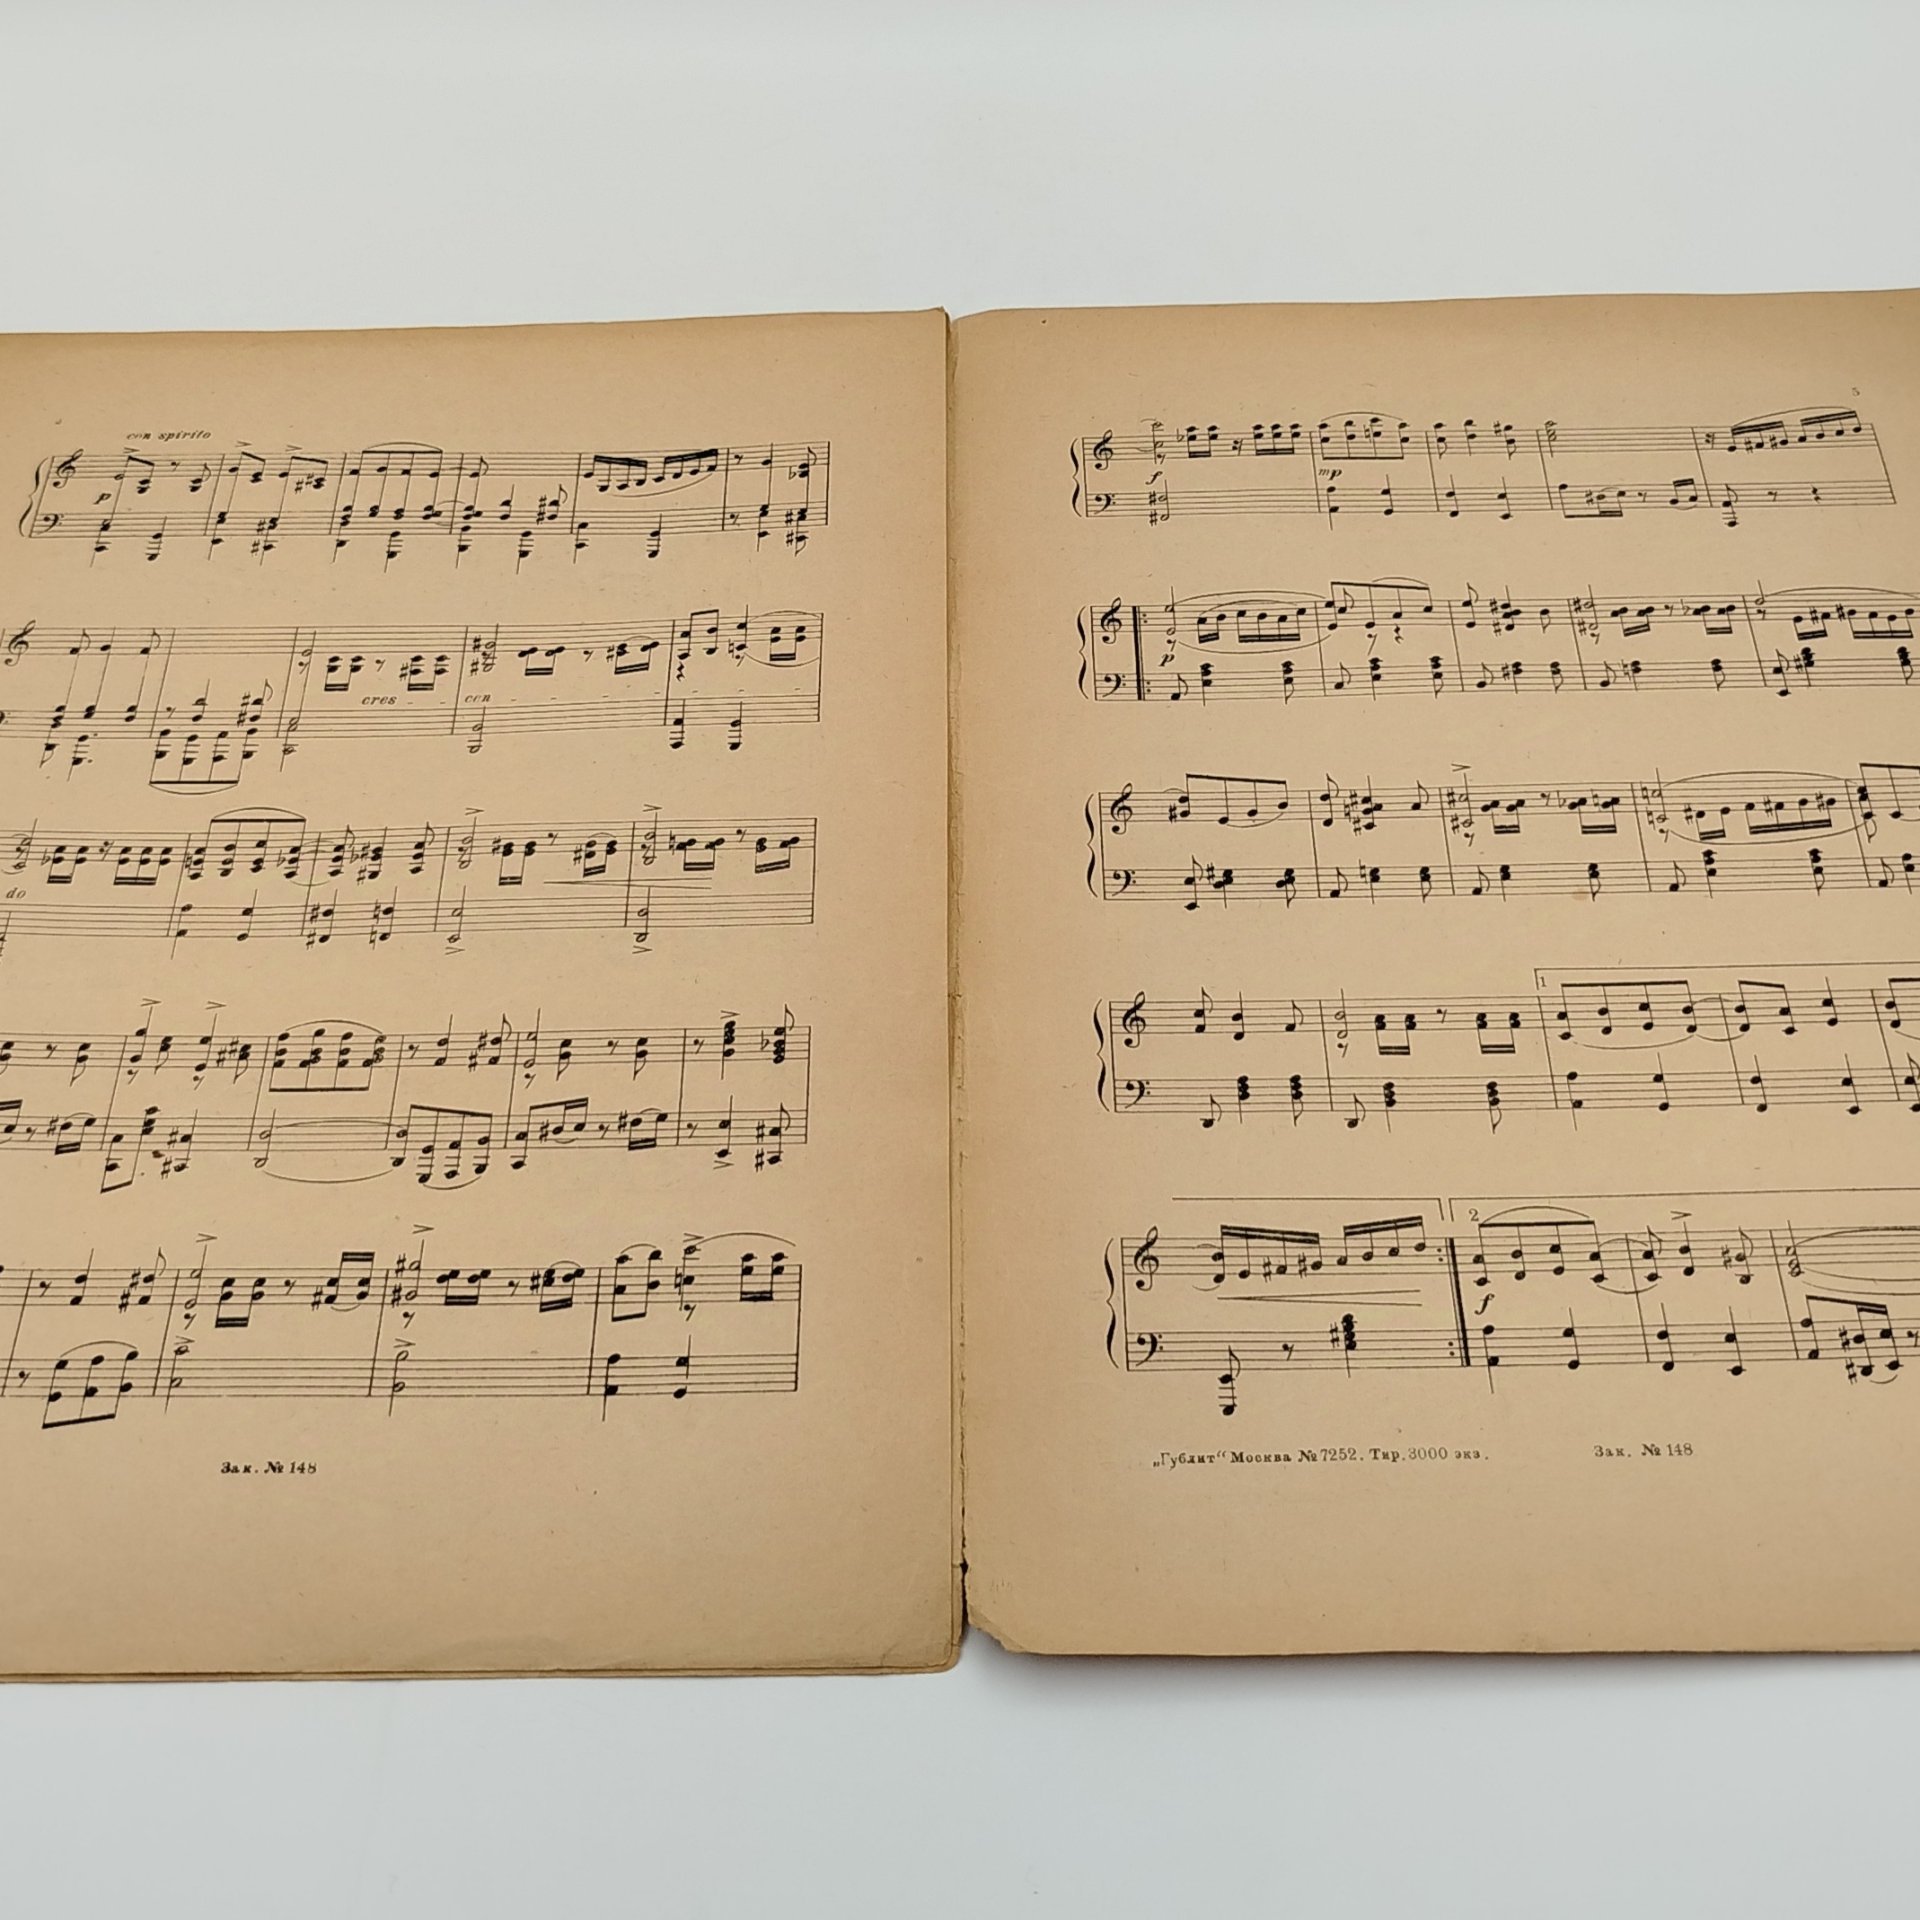 con spirito
p
cres - - cen - - - -
do
Зак. № 148
f
mp
p
1
2
f
„Гублит“ Москва № 7252. Тир. 3000 экз.
Зак. № 148